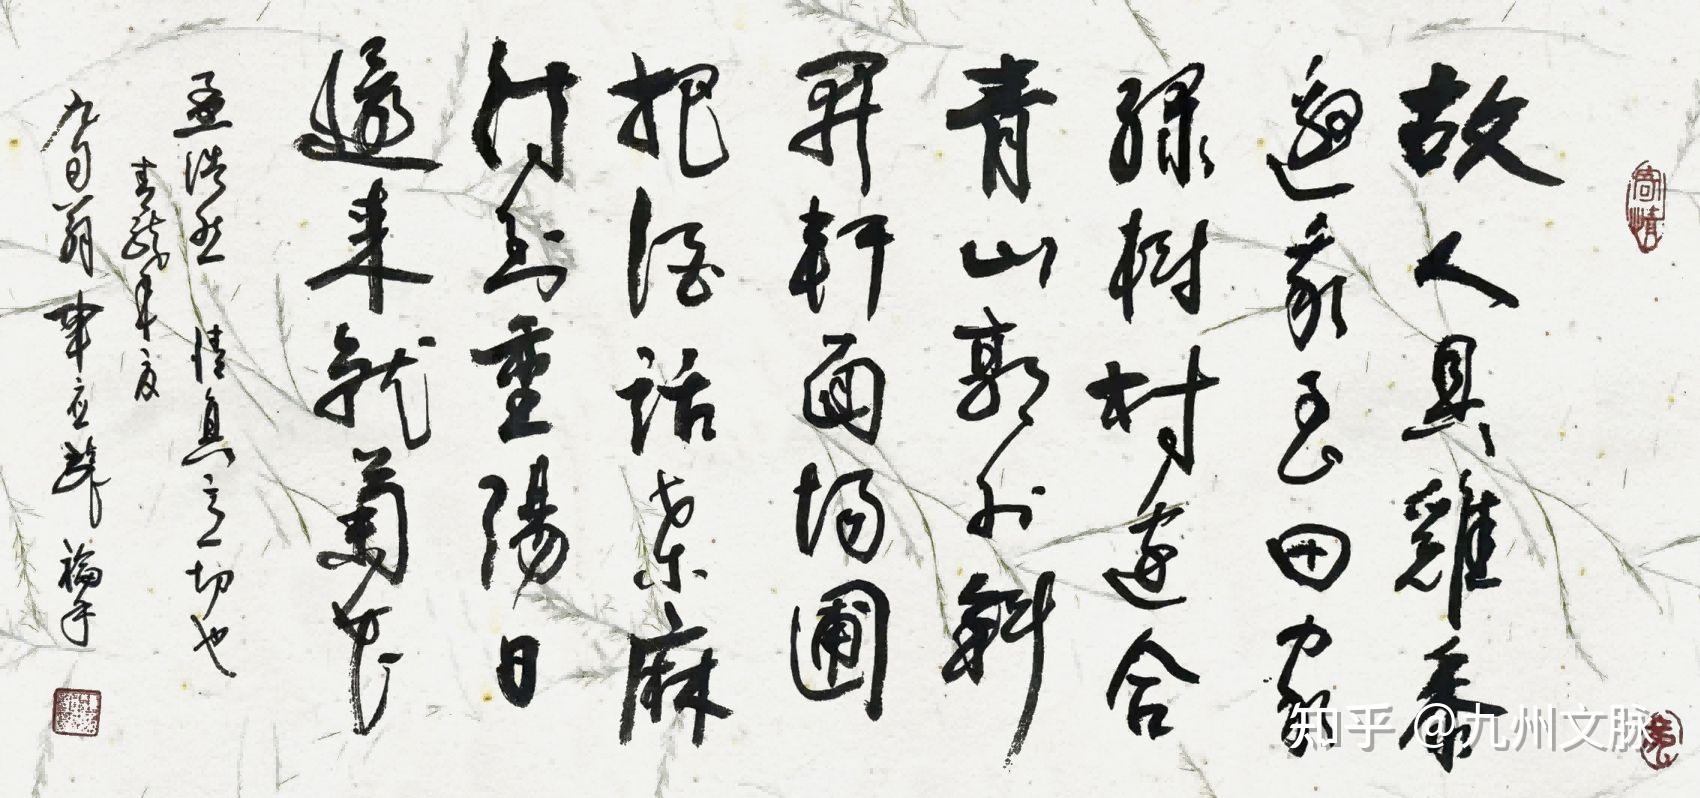 故人具雞黍
邀我至田家
綠樹村邊合
青山郭外斜
開軒面場圃
把酒話桑麻
待到重陽日
還來就菊花
孟浩然 情真意切也
青龍年夏
九旬翁
知乎 @九州文脉